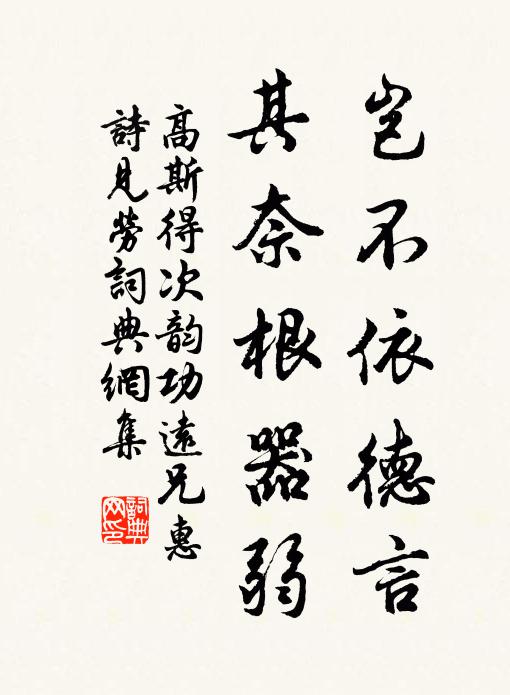 豈不依德言
其奈根器弱
高斯得次韵功遠兄惠
詩見勞詞典網集
詞典
网印